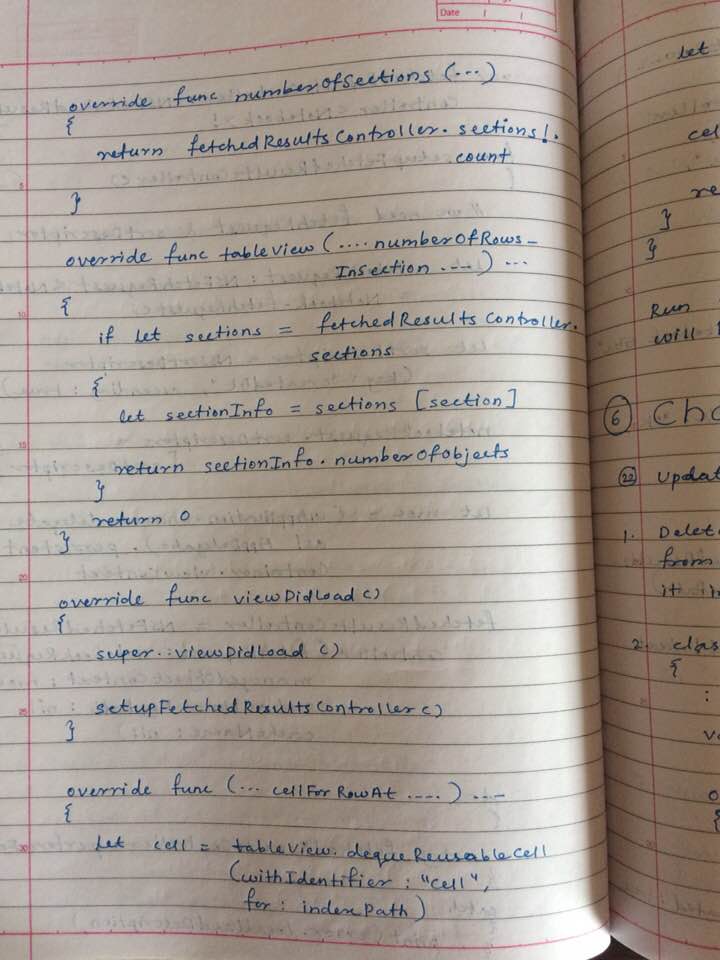 Date / /
override func numberOfSections (...)
{
return fetchedResultsController. sections!.
count
}
override func tableView (.... numberOfRows-
InSection ....) ...
{
if let sections = fetchedResultsController.
sections
{
let sectionInfo = sections [section]
return sectionInfo. numberOfObjects
}
return 0
}
override func viewDidLoad ()
{
super. viewDidLoad ()
setupFetchedResultsController()
}
override func (... cellForRowAt ....) ....
{
let cell = tableView. dequeReusableCell
(withIdentifier : "cell",
for : indexPath)
let
cel
re
}
}
Run
will
6 Cha
22 Updat
1. Delet
from
it i
2. class
{
:
v
o
{